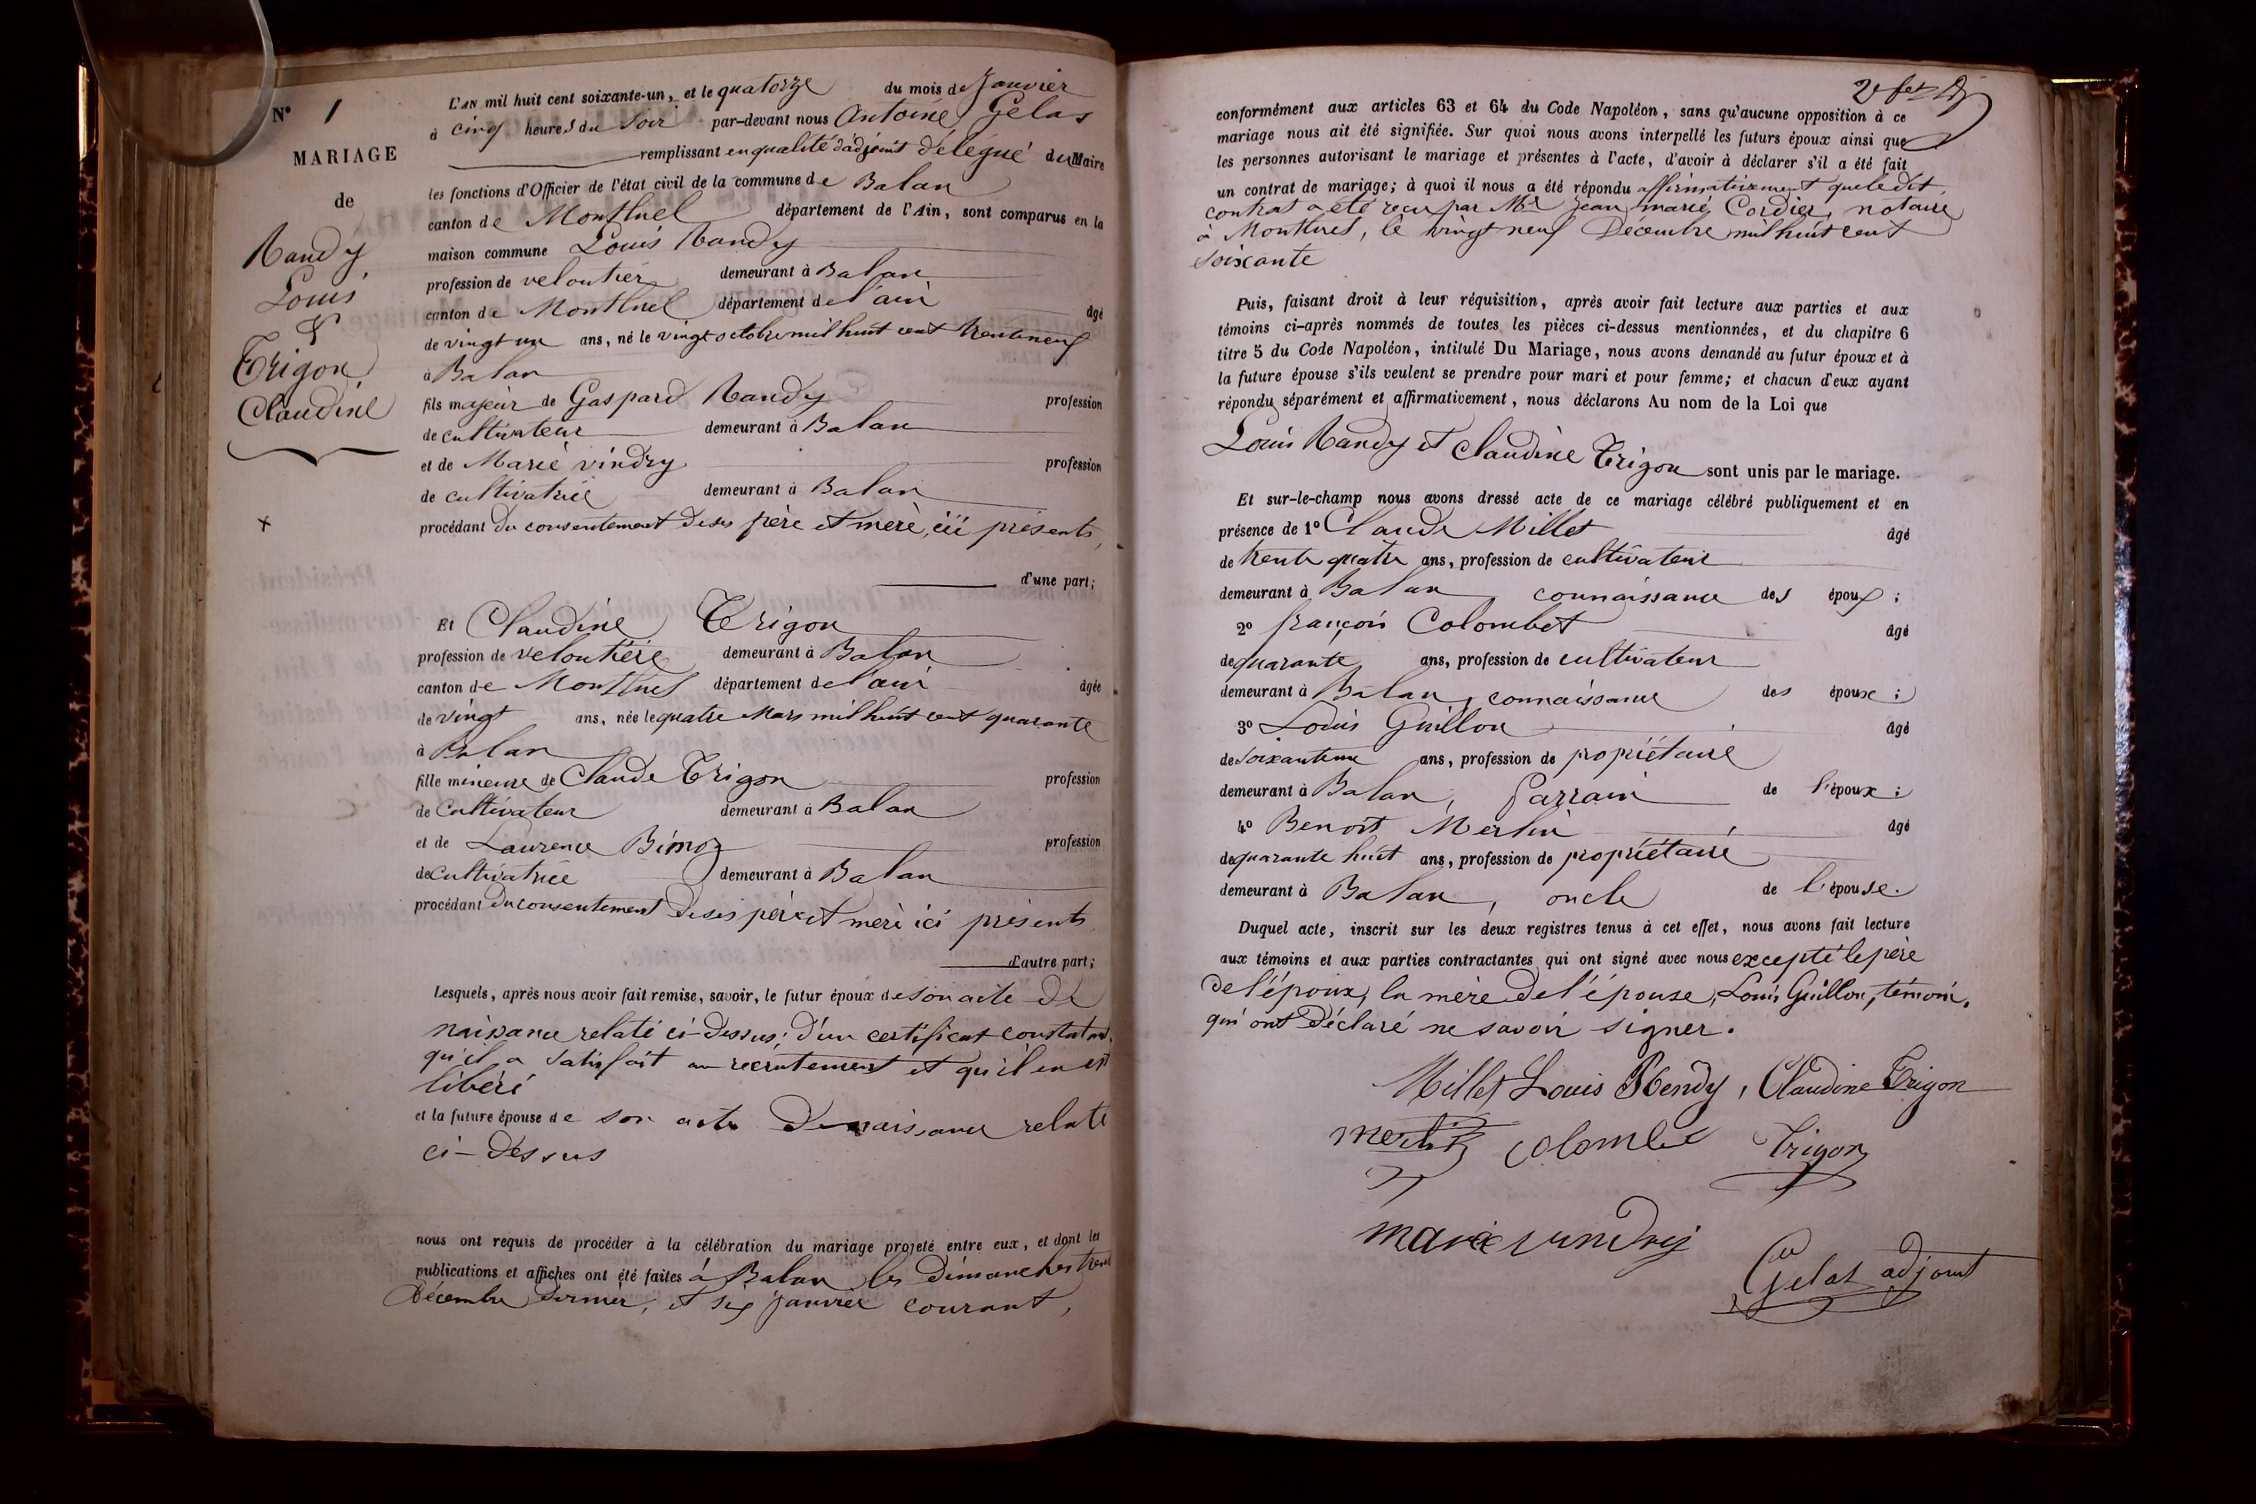 N° 1
MARIAGE
de
Randy
Louis
&
Trigon
Claudine
L'AN mil huit cent soixante-un, et le quatorze du mois de Janvier
à cinq heures du Soir par-devant nous Antoine Gelas
remplissant en qualité d'adjoint délégué du Maire
les fonctions d'Officier de l'état civil de la commune de Balan
canton de Montluel département de l'Ain, sont comparus en la
maison commune Louis Randy
profession de veloutier demeurant à Balan
canton de Montluel département de l'ain âgé
de vingt un ans, né le vingt octobre mil huit cent trente neuf
à Balan
fils majeur de Gaspard Randy profession
de cultivateur demeurant à Balan
et de Marie vindry profession
de cultivatrice demeurant à Balan
procédant du consentement de ses père et mère, ici présents,
d'une part;
Et Claudine Trigon
profession de veloutière demeurant à Balan
canton de Montluel département de l'ain âgée
de vingt ans, née le quatre Mars mil huit cent quarante
à Balan
fille mineure de Claude Trigon profession
de cultivateur demeurant à Balan
et de Laurence Bimoz profession
de cultivatrice demeurant à Balan
procédant du consentement de ses père et mère ici présents
d'autre part;
Lesquels, après nous avoir fait remise, savoir, le futur époux de son acte de
naissance relaté ci-dessus; d'un certificat constatant
qu'il a satisfait au recrutement et qu'il en est
libéré
et la future épouse de son acte de naissance relaté
ci-dessus
nous ont requis de procéder à la célébration du mariage projeté entre eux, et dont les
publications et affiches ont été faites à Balan les dimanches trente
Décembre dernier, et six janvier courant,
conformément aux articles 63 et 64 du Code Napoléon, sans qu'aucune opposition à ce
mariage nous ait été signifiée. Sur quoi nous avons interpellé les futurs époux ainsi que
les personnes autorisant le mariage et présentes à l'acte, d'avoir à déclarer s'il a été fait
un contrat de mariage; à quoi il nous a été répondu affirmativement que ledit
contrat a été reçu par Me Jean marie Cordier, notaire
à Montluel, le vingt neuf Décembre mil huit cent
soixante
Puis, faisant droit à leur réquisition, après avoir fait lecture aux parties et aux
témoins ci-après nommés de toutes les pièces ci-dessus mentionnées, et du chapitre 6
titre 5 du Code Napoléon, intitulé Du Mariage, nous avons demandé au futur époux et à
la future épouse s'ils veulent se prendre pour mari et pour femme; et chacun d'eux ayant
répondu séparément et affirmativement, nous déclarons Au nom de la Loi que
Louis Randy et Claudine Trigon sont unis par le mariage.
Et sur-le-champ nous avons dressé acte de ce mariage célébré publiquement et en
présence de 1° Claude Millet âgé
de trente quatre ans, profession de cultivateur
demeurant à Balan, connaissance des époux;
2° françois Colombet âgé
de quarante ans, profession de cultivateur
demeurant à Balan, connaissance des époux;
3° Louis Guillon âgé
de soixante un ans, profession de propriétaire
demeurant à Balan, parrain de l'époux;
4° Benoit Merlin âgé
de quarante huit ans, profession de propriétaire
demeurant à Balan, oncle de l'épouse.
Duquel acte, inscrit sur les deux registres tenus à cet effet, nous avons fait lecture
aux témoins et aux parties contractantes qui ont signé avec nous excepté le père
de l'époux, la mère de l'épouse, Louis Guillon, témoin,
qui ont déclaré ne savoir signer.
Millet Louis Rendy, Claudine Trigon
merlin colombet Trigon
marie vindry
Gelas adjoint